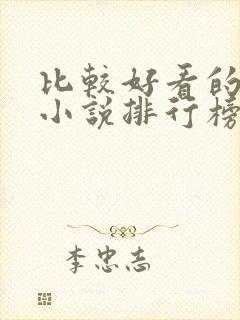 比较好看的
小说排行榜
李忠志